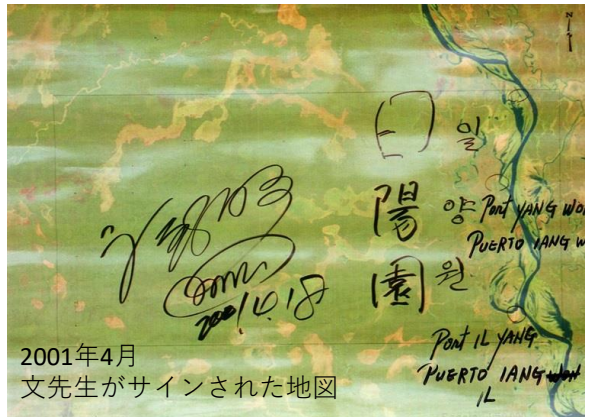 N
日 일
陽 양 Port YANG WON
PUERTO IANG W
園 원
2001.4.18
Port IL YANG
PUERTO IANG
IL
2001年4月
文先生がサインされた地図